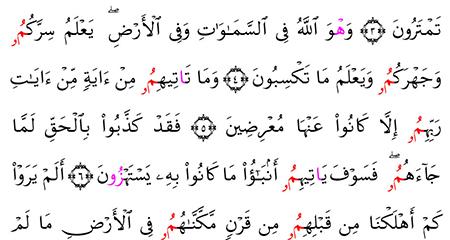 تَمْتَرُونَ ۝٣ وَهْوَ اَللَّهُ فِى اِلسَّمَـٰوَٰتِ وَفِى اِلْأَرْضِ ۖ يَعْلَمُ سِرَّكُمُۥ
وَجَهْرَكُمُۥ وَيَعْلَمُ مَا تَكْسِبُونَ ۝٤ وَمَا تَاتِيهِمُۥ مِنْ ءَايَةٍ مِّنْ ءَايَـٰتِ
رَبِّهِمُۥ إِلَّا كَانُوا۟ عَنْهَا مُعْرِضِينَ ۝٥ فَقَدْ كَذَّبُوا۟ بِالْحَقِّ لَمَّا
جَآءَهُمُۥ ۖ فَسَوْفَ يَاتِيهِمُۥ أَنۢبَـٰٓؤُا۟ مَا كَانُوا۟ بِهِۦ يَسْتَهْزُونَ ۝٦ أَلَمْ يَرَوْا۟
كَمْ أَهْلَكْنَا مِن قَبْلِهِمُۥ مِن قَرْنٍ مَّكَّنَّـٰهُمُۥ فِى اِلْأَرْضِ مَا لَمْ